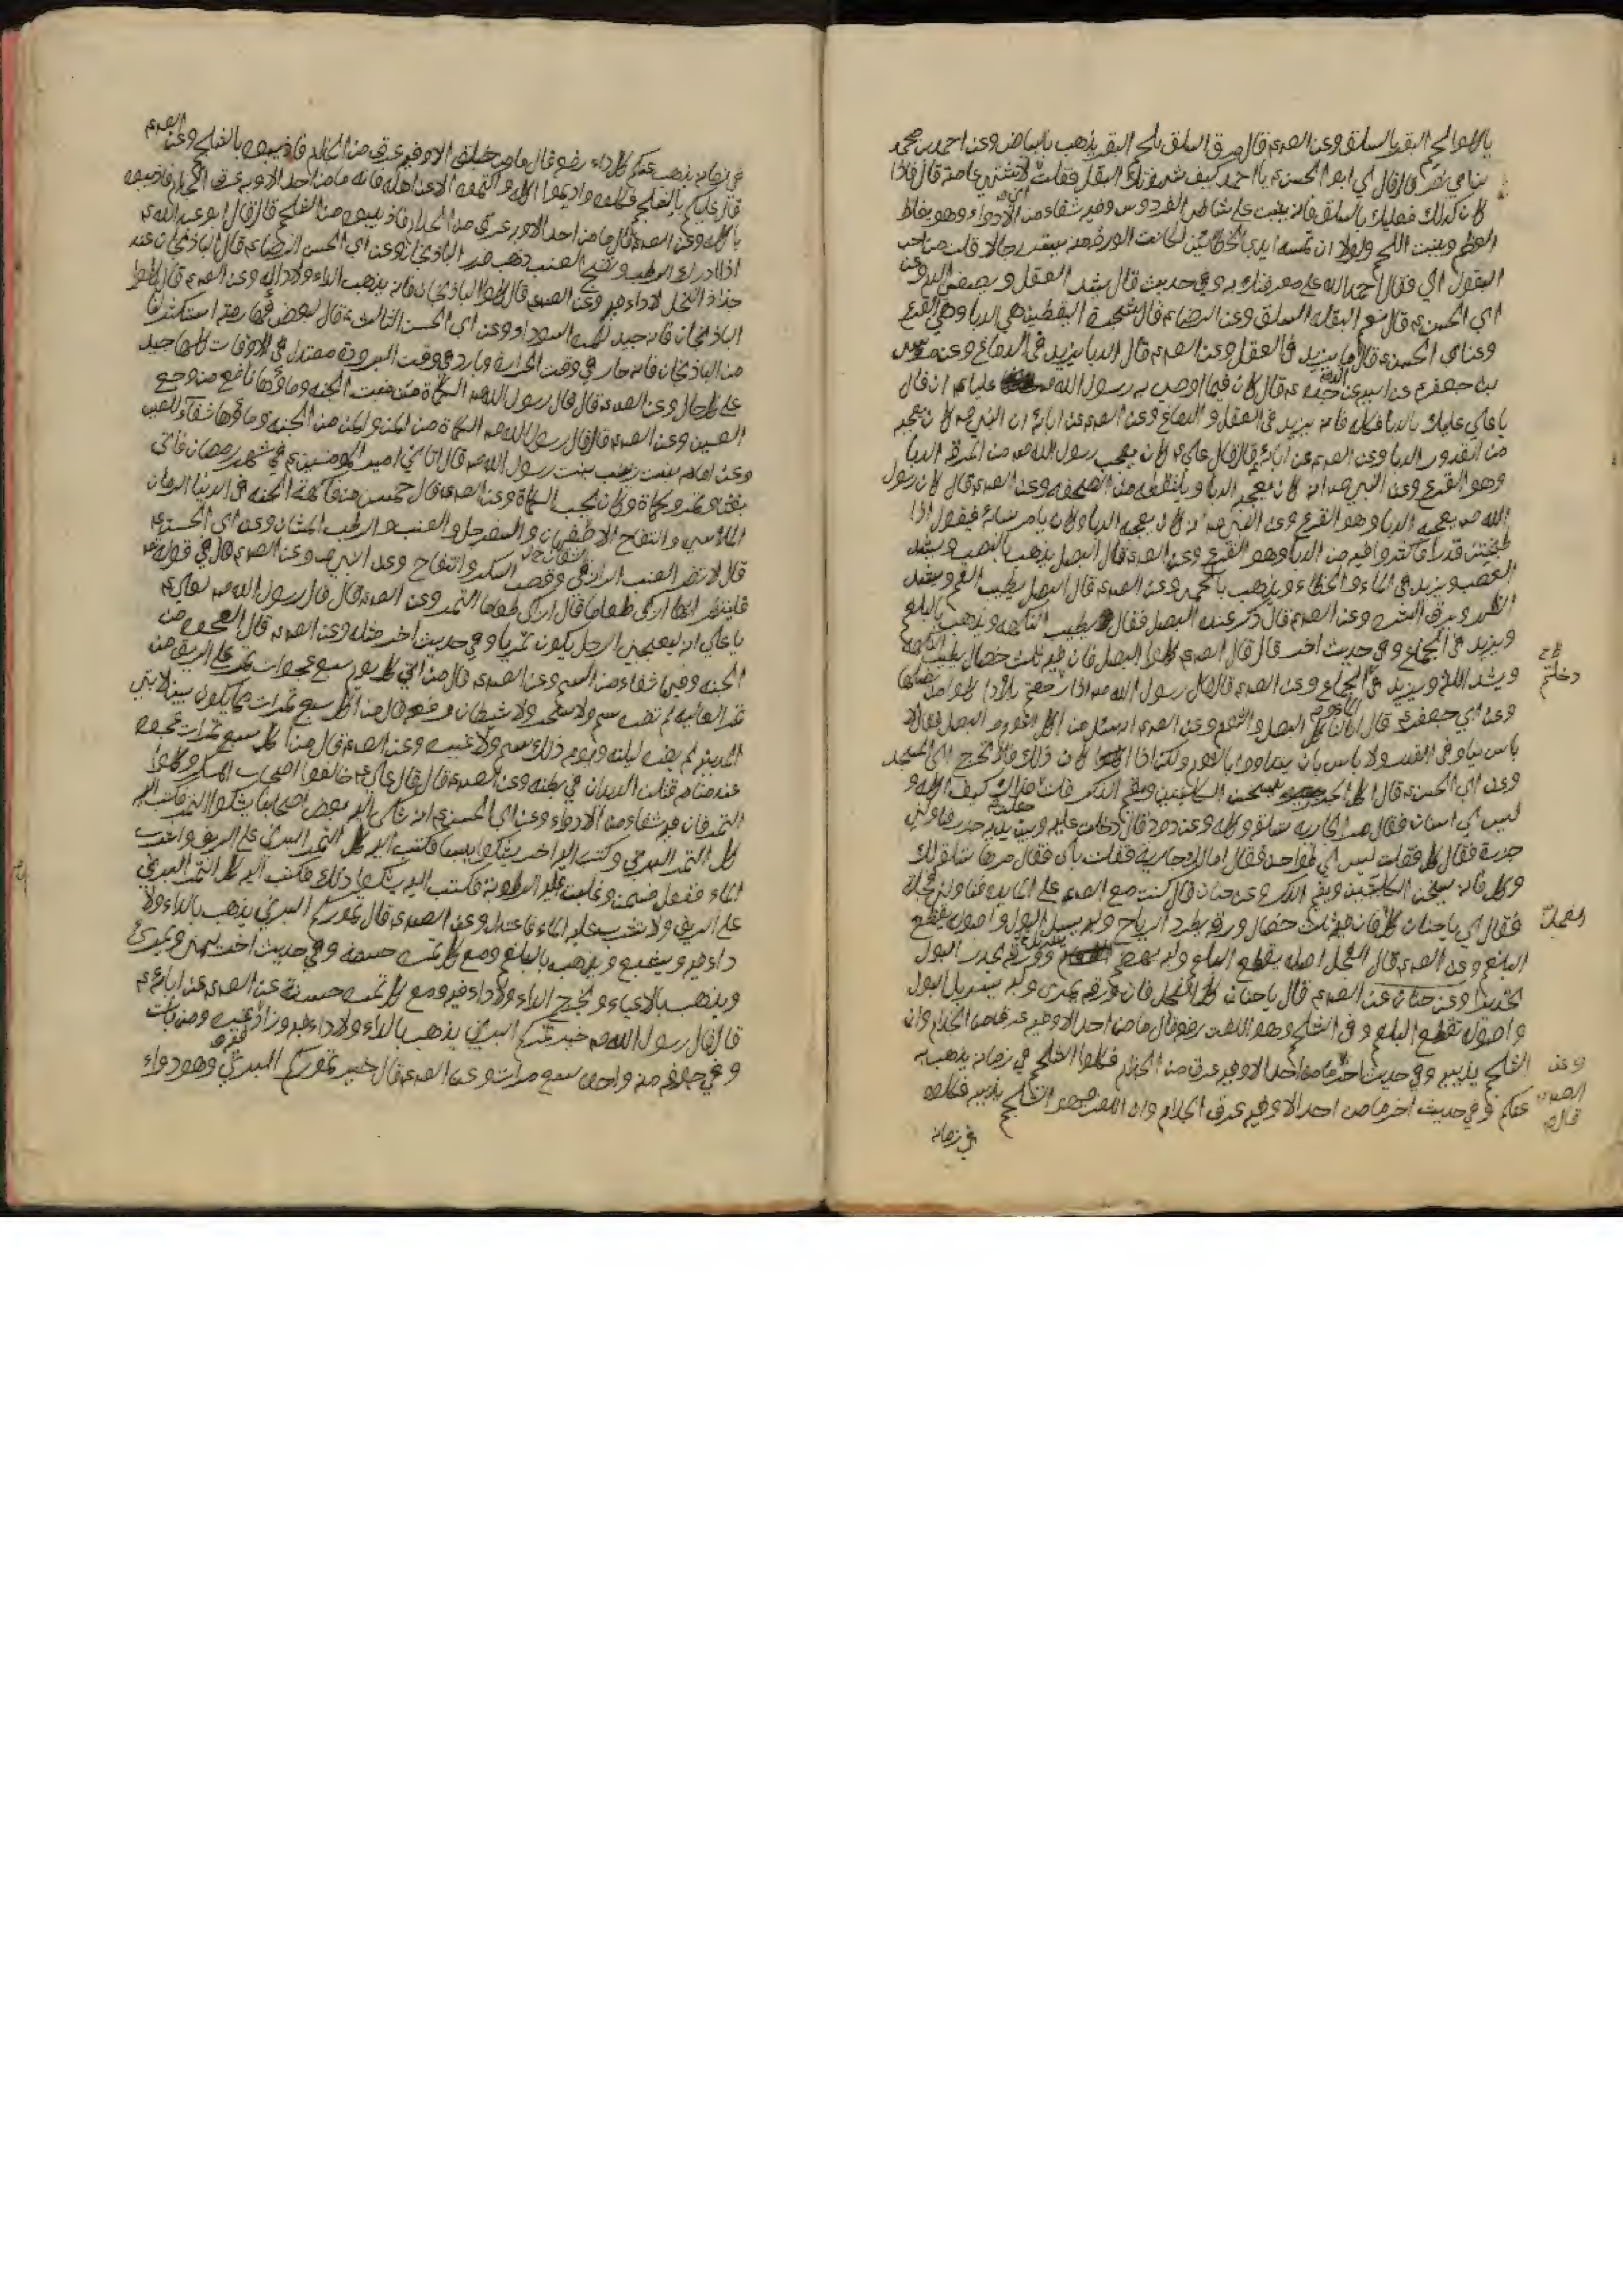 ياكلوا لحم البقر بالسلق وعن الصم قال مرق السلق بلحم البقر يذهب بالبياض وعن احمد بن محمد
بن ابي نصر قال قال لي ابو الحسن ع يا احمد كيف شهوتك البقل فقلت لاشتهي عامته قال فاذا
كان كذلك فعليك بالسلق فانه ينبت على شاطئ الفردوس وفيه شفاء من الادواء وهو يغلظ
العظم وينبت اللحم ولولا ان تمسه ايدي الخاطئين لكانت الورقة منه يستر رجالا قلت من احب
البقول الي فقال احمد الله على معرفتك به وفي حديث قال يشد العقل ويصفي الدم وعن
ابي الحسن ع قال نعم البقلة السلق وعن الرضا ع قال شجرة اليقطين هي الدبا وهي القرع
وعن ابي الحسن ع قال الدبا يزيد في العقل وعن الصم قال الدبا يزيد في الدماغ وعن موسى
بن جعفر عن ابيه عن جده ع قال كان فيما اوصى به رسول الله ص عليا ع ان قال
يا علي عليك بالدبا فكله فانه يزيد في العقل والدماغ وعن الصم عن ابائه ان النبي ص كان يعجبه
من القدور الدبا وعن الصم عن ابائه قال قال علي ع كان يعجب رسول الله ص من المرقة الدبا
وهو القرع وعن النبي ص انه كان يعجبه الدبا ويلتقطه من الصحفة وعن الصم قال كان رسول
الله ص يعجبه الدبا وهو القرع وعن النبي ص انه كان يعجبه الدبا وكان يامر نسائه فيقول اذا
طبختن قدرا فاكثروا فيه من الدبا وهو القرع وعن الصم قال البصل يذهب بالنصب ويشد
العصب ويزيد في الماء والخطاء ويذهب بالحمى وعن الصم قال البصل يطيب الفم ويشد
الظهر ويرق البشرة وعن الصم قال ذكر عنده البصل فقال يطيب النكهة ويذهب بالبلغم
ويزيد في الجماع وفي حديث اخر قال قال الصم كلوا البصل فان فيه ثلث خصال يطيب النكهة
ويشد اللثة ويزيد في الجماع وعن الصم قال قال رسول الله ص اذا دخلتم بلادا كلوا من بصلها
وعن ابي جعفر ع قال انا لنا كل البصل والثوم وعن الصم انه سئل عن اكل الثوم والبصل فقال لا
باس نيا وفي القدر ولا باس بان يتداوى بالثوم ولكن اذا كان ذلك فلا يخرج الى المسجد
وعن ابي الحسن ع قال كل الجزر يسخن الكليتين ويقيم الذكر قلت فداك كيف اكله و
ليس لي اسنان فقال مر الجارية تسلقه وكله وعن داود قال دخلت عليه وبين يديه جزر فناولني
جزرة فقال كل فقلت ليس لي طواحن فقال امالك جارية فقلت بلى فقال مرها تسلق لك
وكل فانه يسخن الكليتين ويقيم الذكر وعن حنان قال كنت مع الصم على المائدة فناولني فجلة
فقال لي يا حنان كل الفجل فان فيه ثلث خصال ورقه يطرد الرياح ولبه يسهل البول واصوله يقطع
البلغم وعن الصم قال الفجل اصله يقطع البلغم ولبه يهضم وورقه يحدر البول
تحديرا وعن حنان عن الصم قال يا حنان كل الفجل فان ورقه يمري ولبه يسربل البول
واصوله تقطع البلغم وفي الشلجم وهو اللفت رفعه قال ما من احد الا وفيه عرق من الجذام وان
الشلجم يذيبه وفي حديث اخر ما من احد الا وفيه عرق من الجذام فكلوا الشلجم في زمانه يذهب به
عنكم وفي حديث اخر ما من احد الا وفيه عرق الجذام وان اللفت وهو الشلجم يذيبه فكلوه
في زمانه
دخلتم
الفجل
وعن
الصم
قال
في زمانه يذهب عنكم كل داء رفعه قال ما من خلق الا وفيه عرق من الجذام فاذيبوه بالشلجم وعن الصم
قال عليكم بالشلجم فكلوه واديموا اكله واكتموه الا عن اهله فانه ما من احد الا وبه عرق الجذام فاذيبوه
باكله وعن الصم قال ما من احد الا وبه عرق من الجذام فاذيبوه من الشلجم قال قال ابو عبد الله ع
اذا ادرك الرطب ونضج العنب ذهب ضرر الباذنجان وعن ابي الحسن الرضا ع قال الباذنجان عند
جذاذ النخل لا داء فيه وعن الصم قال كلوا الباذنجان فانه يذهب الداء ولا داء له وعن الصم قال كلوا
الباذنجان فانه جيد للمرة السوداء وعن ابي الحسن الثالث ع قال لبعض قهارمته استكثر لنا
من الباذنجان فانه حار في وقت الحرارة وبارد في وقت البرودة معتدل في الاوقات كلها جيد
على كل حال وعن الصم قال قال رسول الله ص الكماة من نبت الجنة وماؤها نافع من وجع
العين وعن الصم قال قال رسول الله ص الكماة من المن والمن من الجنة وماؤها شفاء للعين
وعن امامه بنت زينب بنت رسول الله ص قال اتاني امير المومنين ع في شهر رمضان فاتى
بعشاء وتمر وكماة وكان يحب الكماة وعن الصم قال خمس من فاكهة الجنة في الدنيا الرمان
الملاسي والتفاح الاصفهان والسفرجل والعنب والرطب المشان وعن ابي الحسن ع
قال لا تضر العنب الرازقي وقصب السكر والتفاح وعن النبي ص وعن الصم قال في قوله تعا
فلينظر ايها ازكى طعاما قال ازكى طعاما التمر وعن الصم قال قال رسول الله ص لعلي ع
يا علي انه ليعجبني الرجل يكون تمريا وفي حديث اخر مثله وعن الصم قال العجوة من
الجنة وفيها شفاء من السم وعن الصم قال من اكل في كل يوم سبع عجوات تمر على الريق من
تمر العالية لم يضره سم ولا سحر ولا شيطان ورفعه قال من اكل سبع تمرات مما يكون بين لابتي
المدينة لم يضره ليلته ويومه ذلك سم ولا غيره وعن الصم قال من اكل سبع تمرات عجوة
عند منامه قتلن الديدان في بطنه وعن الصم قال قال علي ع خالفوا اصحاب المسكر وكلوا
التمر فان فيه شفاء من الادواء وعن ابي الحسن ع انه شكى اليه بعض اصحابنا يشكوا البخر فكتب اليه
كل التمر البرني وكتب اليه اخر يشكوا يبسا فكتب اليه كل التمر البرني على الريق واشرب
الماء ففعل فسمن وغلبت عليه الرطوبة فكتب اليه يشكوا ذلك فكتب اليه كل التمر البرني
على الريق ولا تشرب عليه الماء فاعتدل وعن الصم قال خير تموركم البرني يذهب بالداء ولا
داء فيه ويشبع ويذهب بالبلغم ومع كل تمرة حسنة وفي حديث اخر يهنئ ويمرئ
ويذهب بالاعياء ويخرج الداء ولا داء فيه ومع كل تمرة حسنة عن الصم عن ابائه ع
قال قال رسول الله ص خير تمركم البرني يذهب بالداء ولا داء فيه وزاد غيره ومن بات
وفي جوفه منه واحدة سبع مرات وعن الصم قال خير تموركم البرني وهو دواء